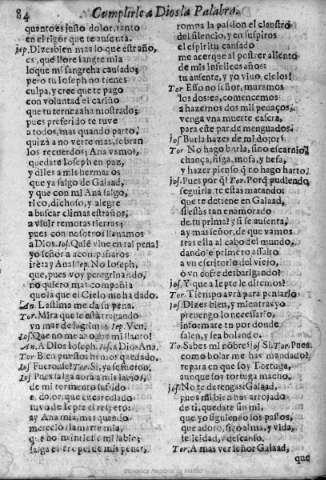 84 Cumplirle a Dios la Palabra.
quanto es justo dolor, tanto
en el rigor que te ausenta.
Jep. Dizes bien mas lo que estraño,
es, que llore sangre mia
lo que mi sangre ha causado;
pero tu Joseph no tienes
culpa, y cree que te pago
con voluntad el cariño
que tu terneza ha mostrado;
pues preferido te tuve
a todos, mas quando parto,
quizà a no verte mas, te bran
los recuerdos: Ana vamos,
quedate Joseph en paz,
y diles a mis hermanos
que ya salgo de Galaad,
y que con mi Ana salgo,
rico, dichoso, y alegre
a buscar climas estraños,
a vivir remotas tierras;
pues con nosotros llevamos
a Dios. Jos. Quiè vive en tal pena!
yo señor a acompañaros
irè, ay Ana! Jep. No Joseph,
que, pues voy peregrinando,
no quiero mas compañia
que la que el Cielo me ha dado.
An. Lastima me dà su pena.
Tor. Mira que le està rogando
Jep. Ven.
Jos. Que no me acabe mi llanto!
An. A Dios Joseph. Jos. a Dios Ana.
Tor. Bien puestos hemos quedado.
Jos. Fueronse? Tor. Si, ya se fueron.
Jos. Pues salga aora mis labios,
de mi tormento salido
el dolor, que encerrado
tuvo de Jepte el respeto:
ay Ana mia, mas quando
mereciò llamarte mia,
salga el de mi pena,
rompa la passion el claustro
del silencio, y en suspiros
el espiritu cansado
me acerque al postrer aliento
de mis infelizes años
tu ausente, y yo vivo, cielos!
Tor. Esso no señor, muramos
los dos, ea, comencemos
a hazernos dos mil pedaços,
venga una muerte casera,
para este par de menguados.
Jos. Burla hazes de mi dolor?
Tor. No hago burla, sino escarnio,
chança, higa, mofa, y befa,
y hazer pienso q no hago harto.
Jos. Pues por q? Tor. Porq pudiendo
seguirla, te estàs matando
que te detiene en Galaad,
si estàs tan enamorado
de tu prima? y si se ausenta,
ay mas señor, de que vamos
tras ella al cabo del mundo,
dandole primero assalto
a un escritorio del viejo,
o un cofre desbarrigando?
Jos. Y que a Jepte le diremos?
Tor. Tiempo avrà para pensarlo
Jos. Dizes bien, y mientras yo
prevengo lo necessario,
informate tu por donde
salen, y sea bolando.
Tor. Sabes mi nõbre? Jos. Si. Tor. Pues
como bolar me has mandado?
repara en que soy Tortuga,
aunque soy tortuga macho.
Jos. No te detengas: Galaad,
pues mi bien has arrojado
de ti, quedate sin mi,
que yo siguiendo los passos,
que adoro, si, o al va, y vida,
te he dado, y descanso.
Tor. A mas ver señor Galaad,
que
Biblioteca Nacional de España